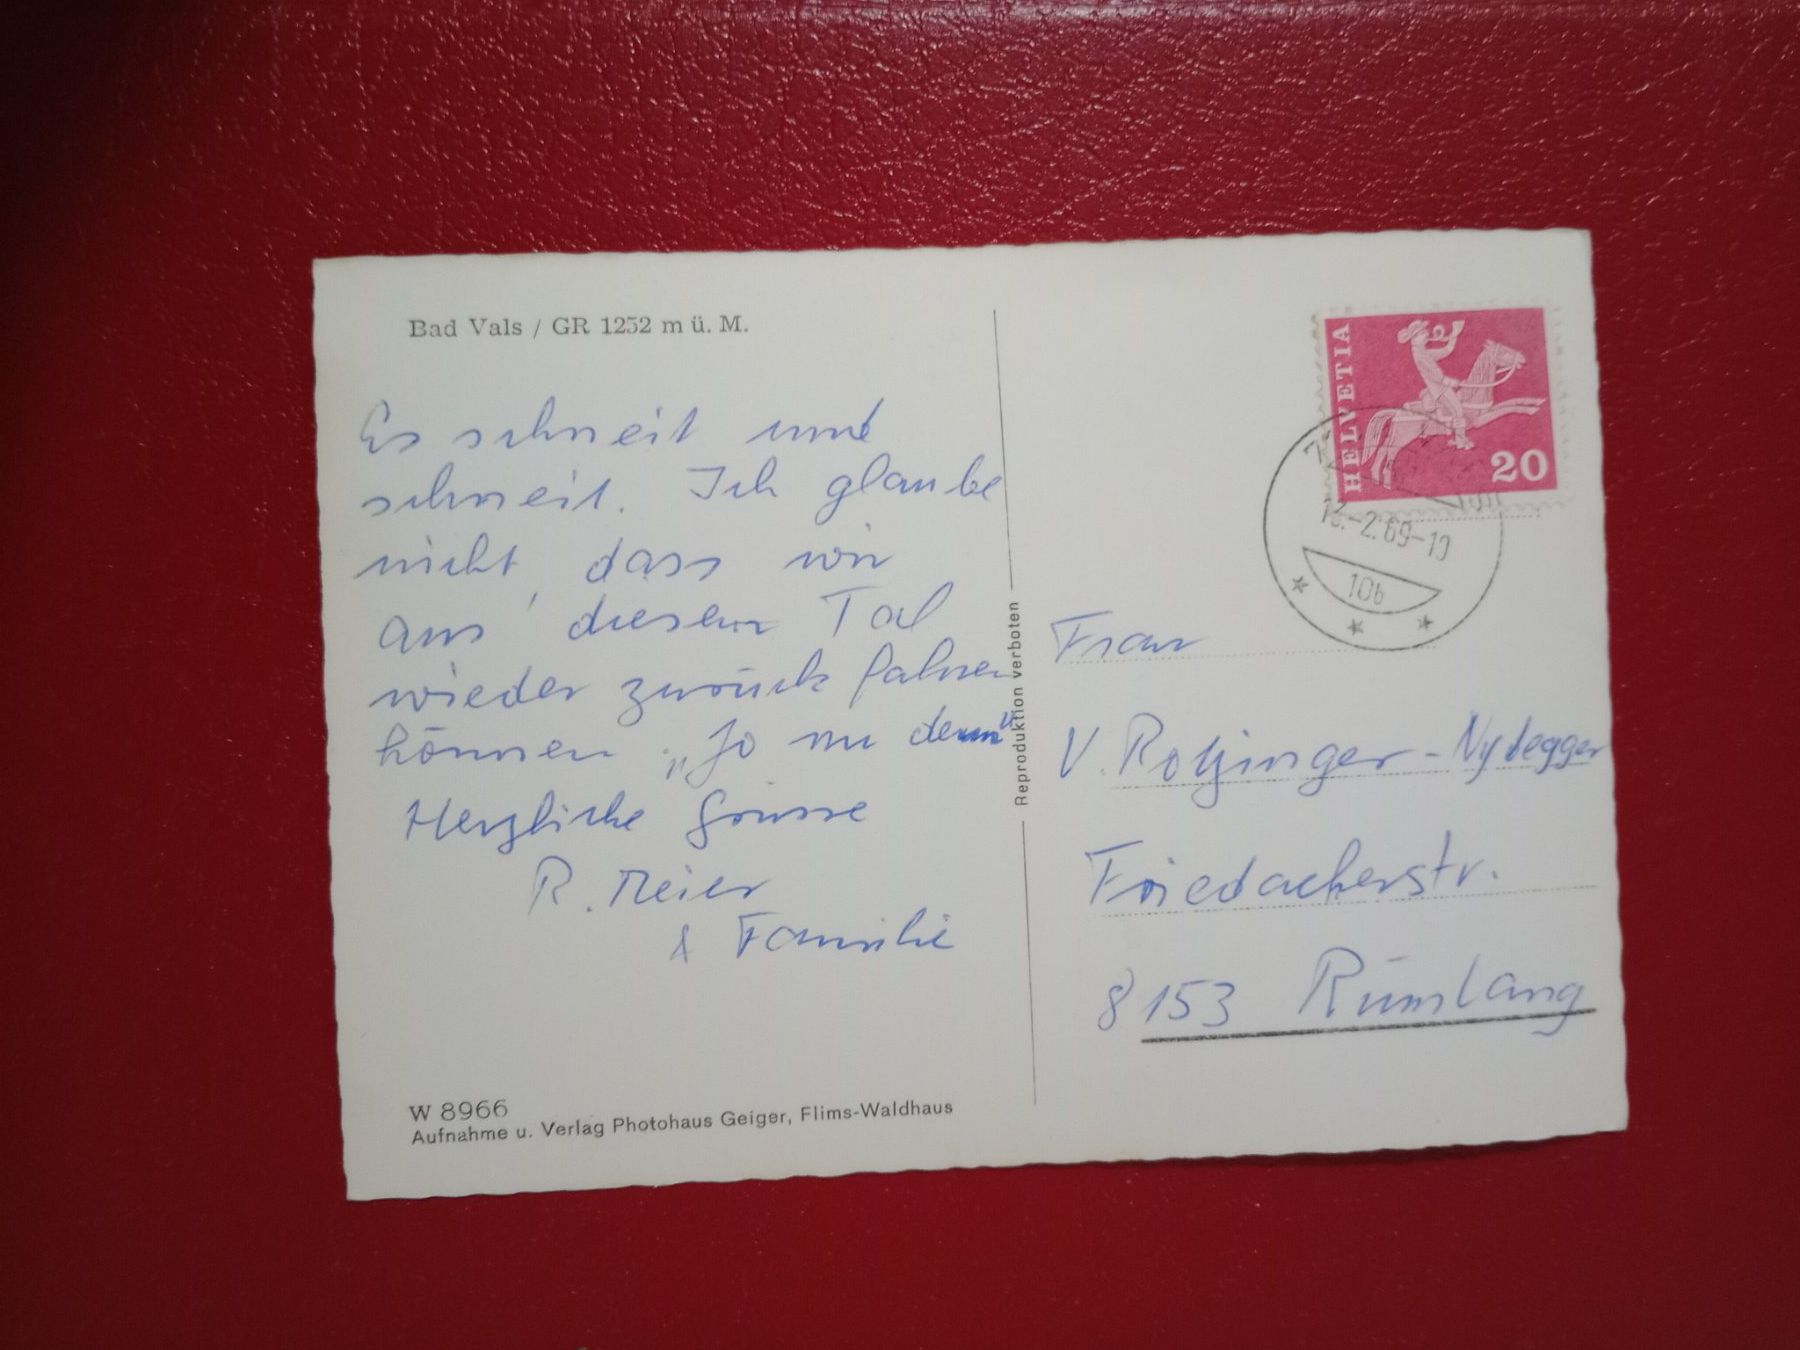 Bad Vals / GR 1252 m ü. M.
Es schneit und
schneit. Ich glaube
nicht, dass wir
aus diesem Tal
wieder zurück fahren
können. „Jo nu
Herzliche Grüsse
R. Meier
& Familie
W 8966
Aufnahme u. Verlag Photohaus Geiger, Flims-Waldhaus
Reproduktion verboten
HELVETIA
20
-2.69-10
10b
Frau
V. - Nydegger
Friedackerstr.
8153 Rümlang